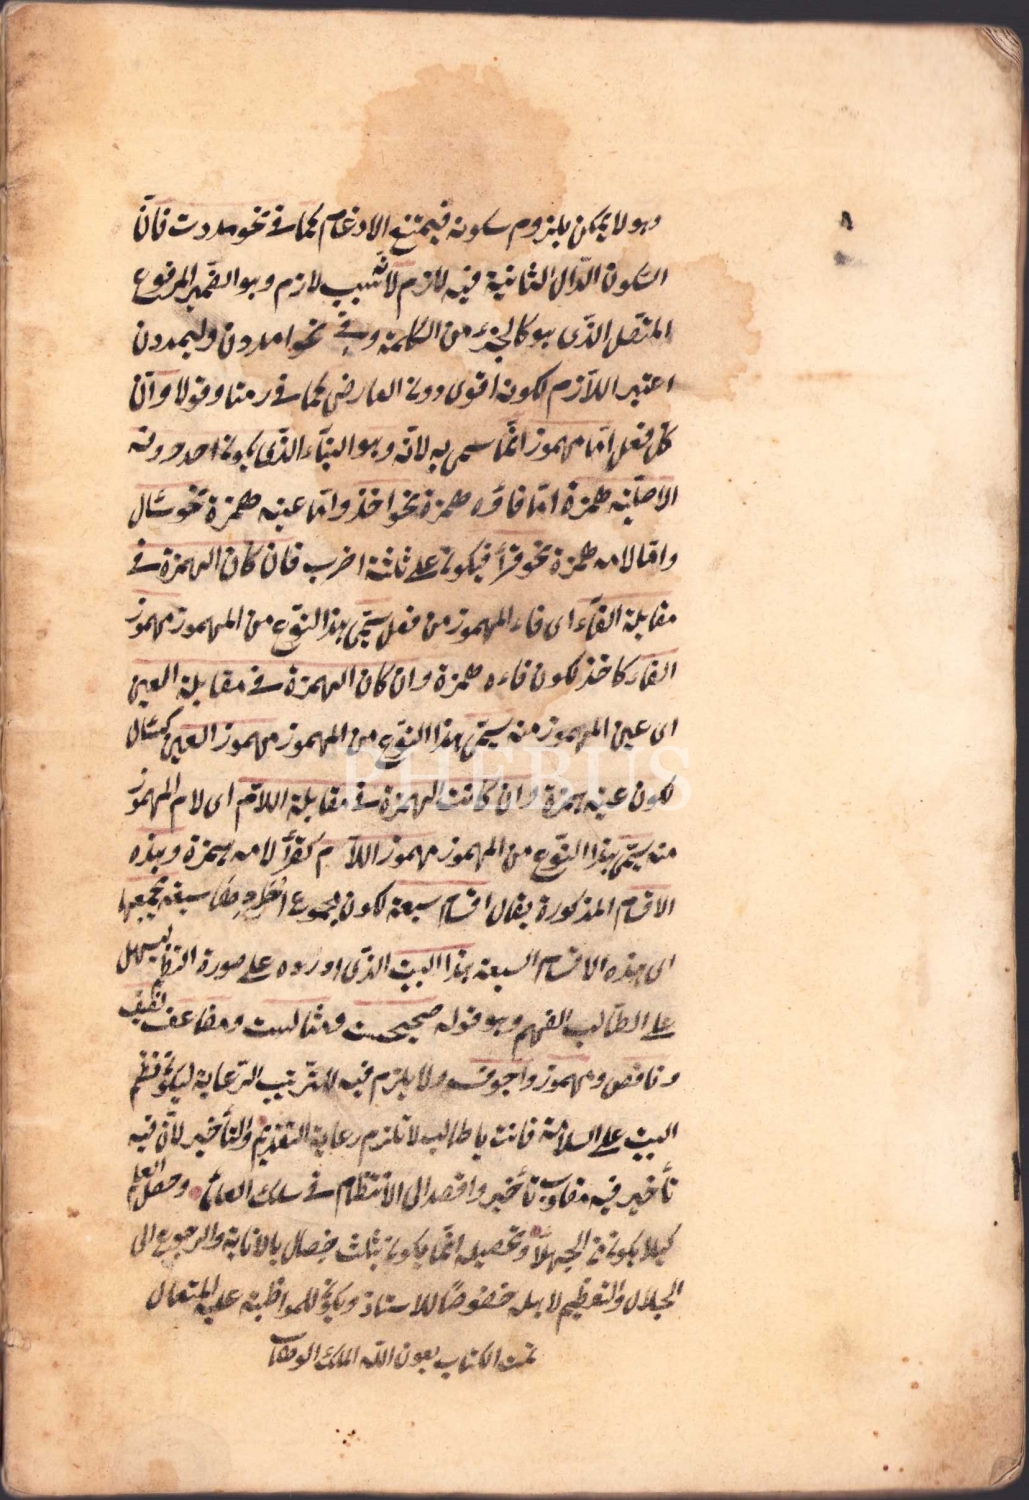 وهو لا يمكن بلزوم سكونه فيمتنع الادغام كما في نحو مددت فانّ
السّكون الدّال الثانية فيه لازم لانّه بسبب لازم وهو الضّمير المرفوع
المتّصل الّذى هو كالجزء من الكلمة وفي نحو امددن وليمددن
اعتبر اللّازم لكونه اقوى دون العارضى كما في رمتا وقولا وانّ
كلّ فعل امّا مهموز انّما سمى به لانّه وهو البنآء الّذى يكون احد حروفه
الاصليّة همزة امّا فاؤه همزة نحو اخذ وامّا عينه همزة نحو سئال
وامّا لامه همزة نحو قرأ فيكون على ثلثة اضرب فان كان الهمزة في
مقابلة الفآء اى فاء المهموز من فعل يسمّى هذا النّوع من المهموز مهموز
الفاء كاخذ لكون فاءه همزة وان كان الهمزة في مقابلة العين
اى عين المهموز منه يسمّى هذا النّوع من المهموز مهموز العين كسئال
لكون عينه همزة وان كانت الهمزة في مقابلة اللّام اى لام المهموز
منه يسمّى هذا النّوع من المهموز مهموز اللّام كقرأ لامه همزة وهذه
الاقسام المذكورة يقال اقسام سبعة لكون مجموع سبعة يجمعها
اى هذه الاقسام السبعة هذا البيت الّذى اورده على صورة النظم ليسهل
على الطّالب الفهم وهو قوله صحيحست ومثالست ومضاعف لفيف
وناقص ومهموز واجوف ولا يلزم فيه للترتيب الرّعاية ليكون نظم
البيت على السلامة فانت يا طالب لا تلتزم رعاية التقديم والتأخير لانّ فيه
تأخير فيه تأخير واقصد الى الانتظام في سلك العلماء وحصّل العلم
كيلا يكون من الجهلآء وتحصيله انّما يكون بثلث خصال بالانابة والرجوع الى
الجلال والتعظيم لاهله خصوصًا للاستاذ ويكون للمواظبة عليه المتعال
تمت الكتاب بعون الله الملك الوهاب
PHEBUS